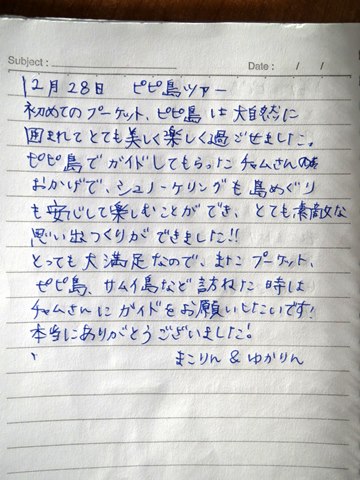 Subject :
Date : / /
12月28日 ピピ島ツアー
初めてのプーケット、ピピ島は大自然に
囲まれてとても美しく楽しく過ごせました。
ピピ島でガイドしてもらったチャムさんの
おかげで、シュノーケリングも島めぐり
も安心して楽しむことができ、とても素敵な
思い出つくりができました!!
とっても大満足なので、またプーケット、
ピピ島、サムイ島など訪ねた時は
チャムさんにガイドをお願いしたいです!
本当にありがとうございました!
まこりん & ゆかりん